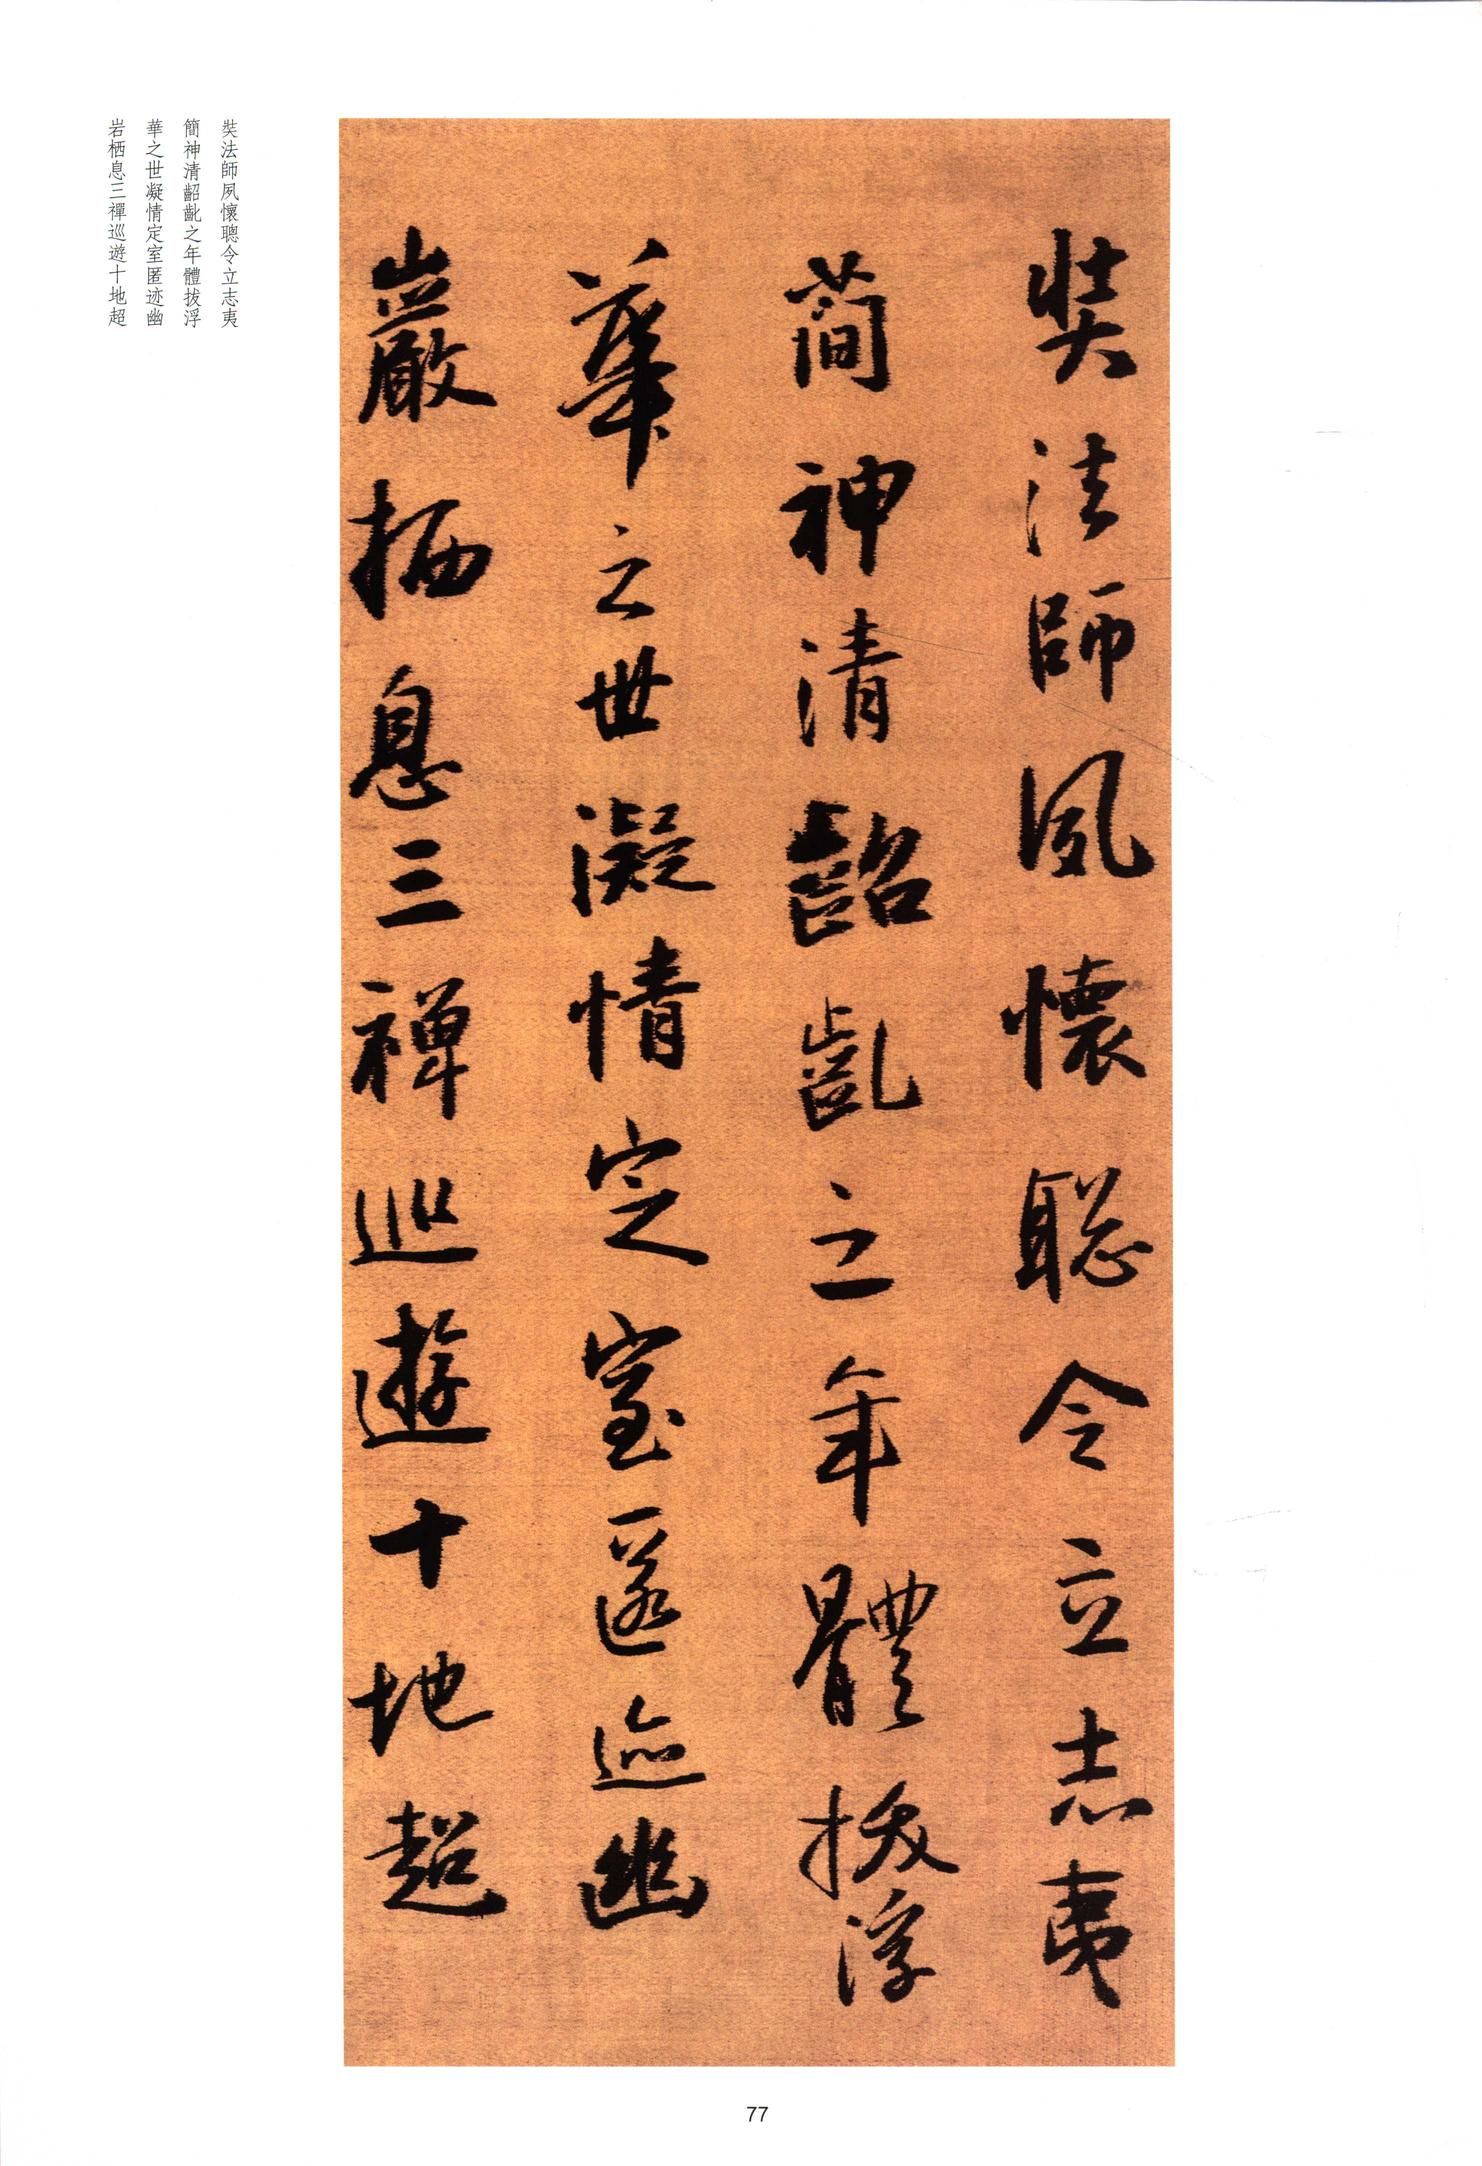 奘法師夙懷聰令立志夷
簡神清齠齔之年體拔浮
華之世凝情定室匿迹幽
巖栖息三禪巡遊十地超
奘法師夙懷聰令立志夷
簡神清齠齔之年體拔浮
華之世凝情定室匿迹幽
岩栖息三禪巡遊十地超
77